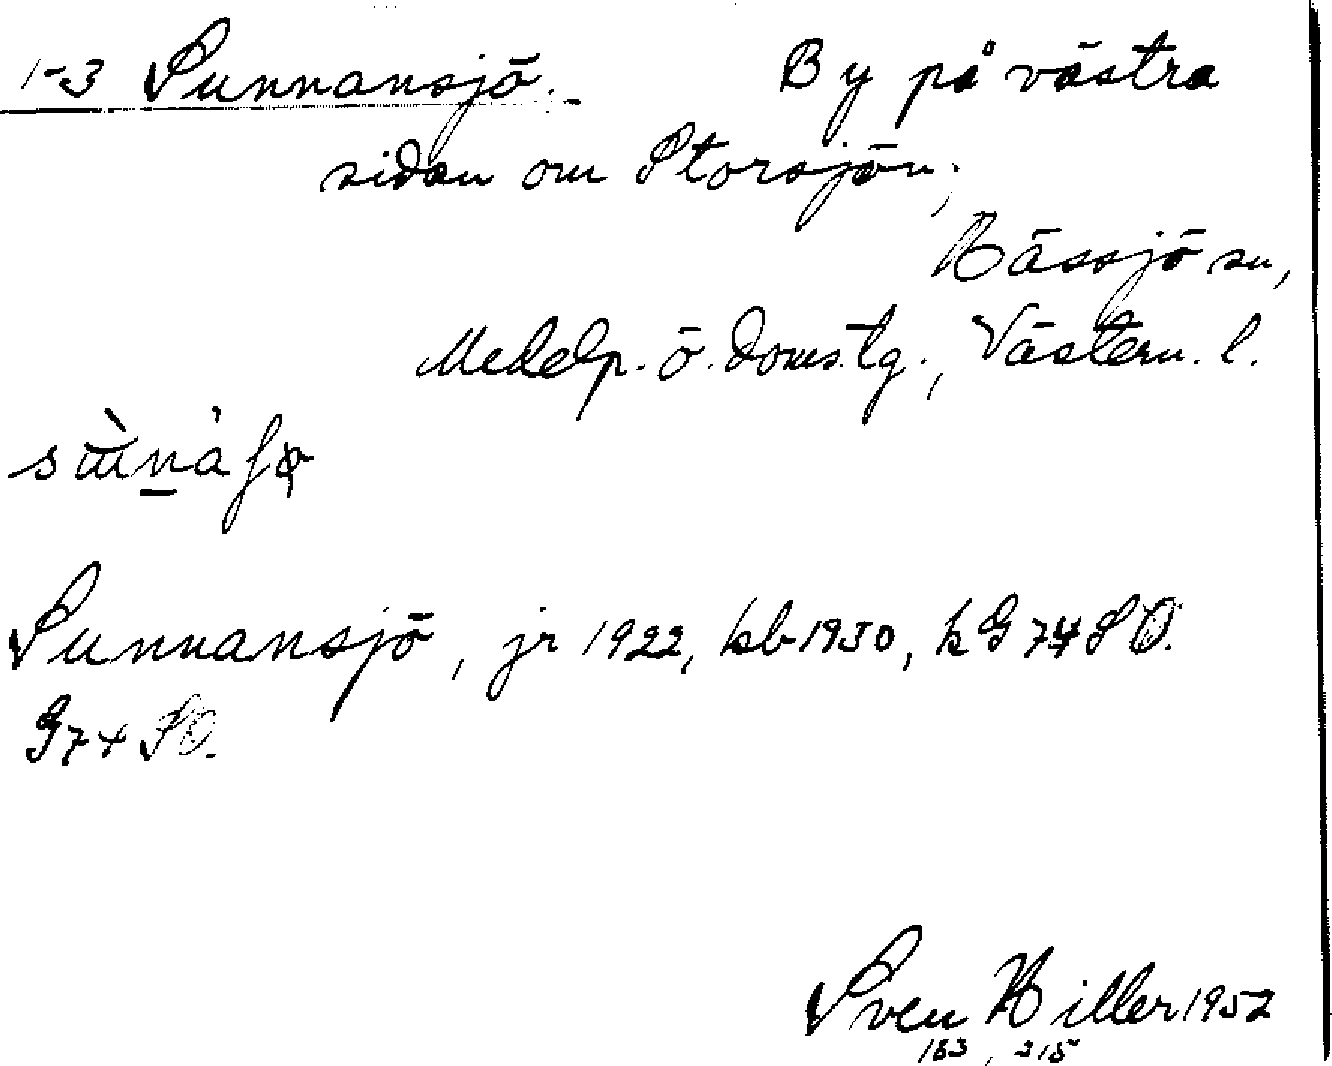 1-3 Sunnansjö. By på västra
sidan om Storsjön;
Hässjö sn,
Medelp. ö. doms.tg., Västern. l.
Sunnansjö, jr 1922, kb 1950, k G 74 SO.
G 74 SO.
Sven Hiller 1952
163, 215